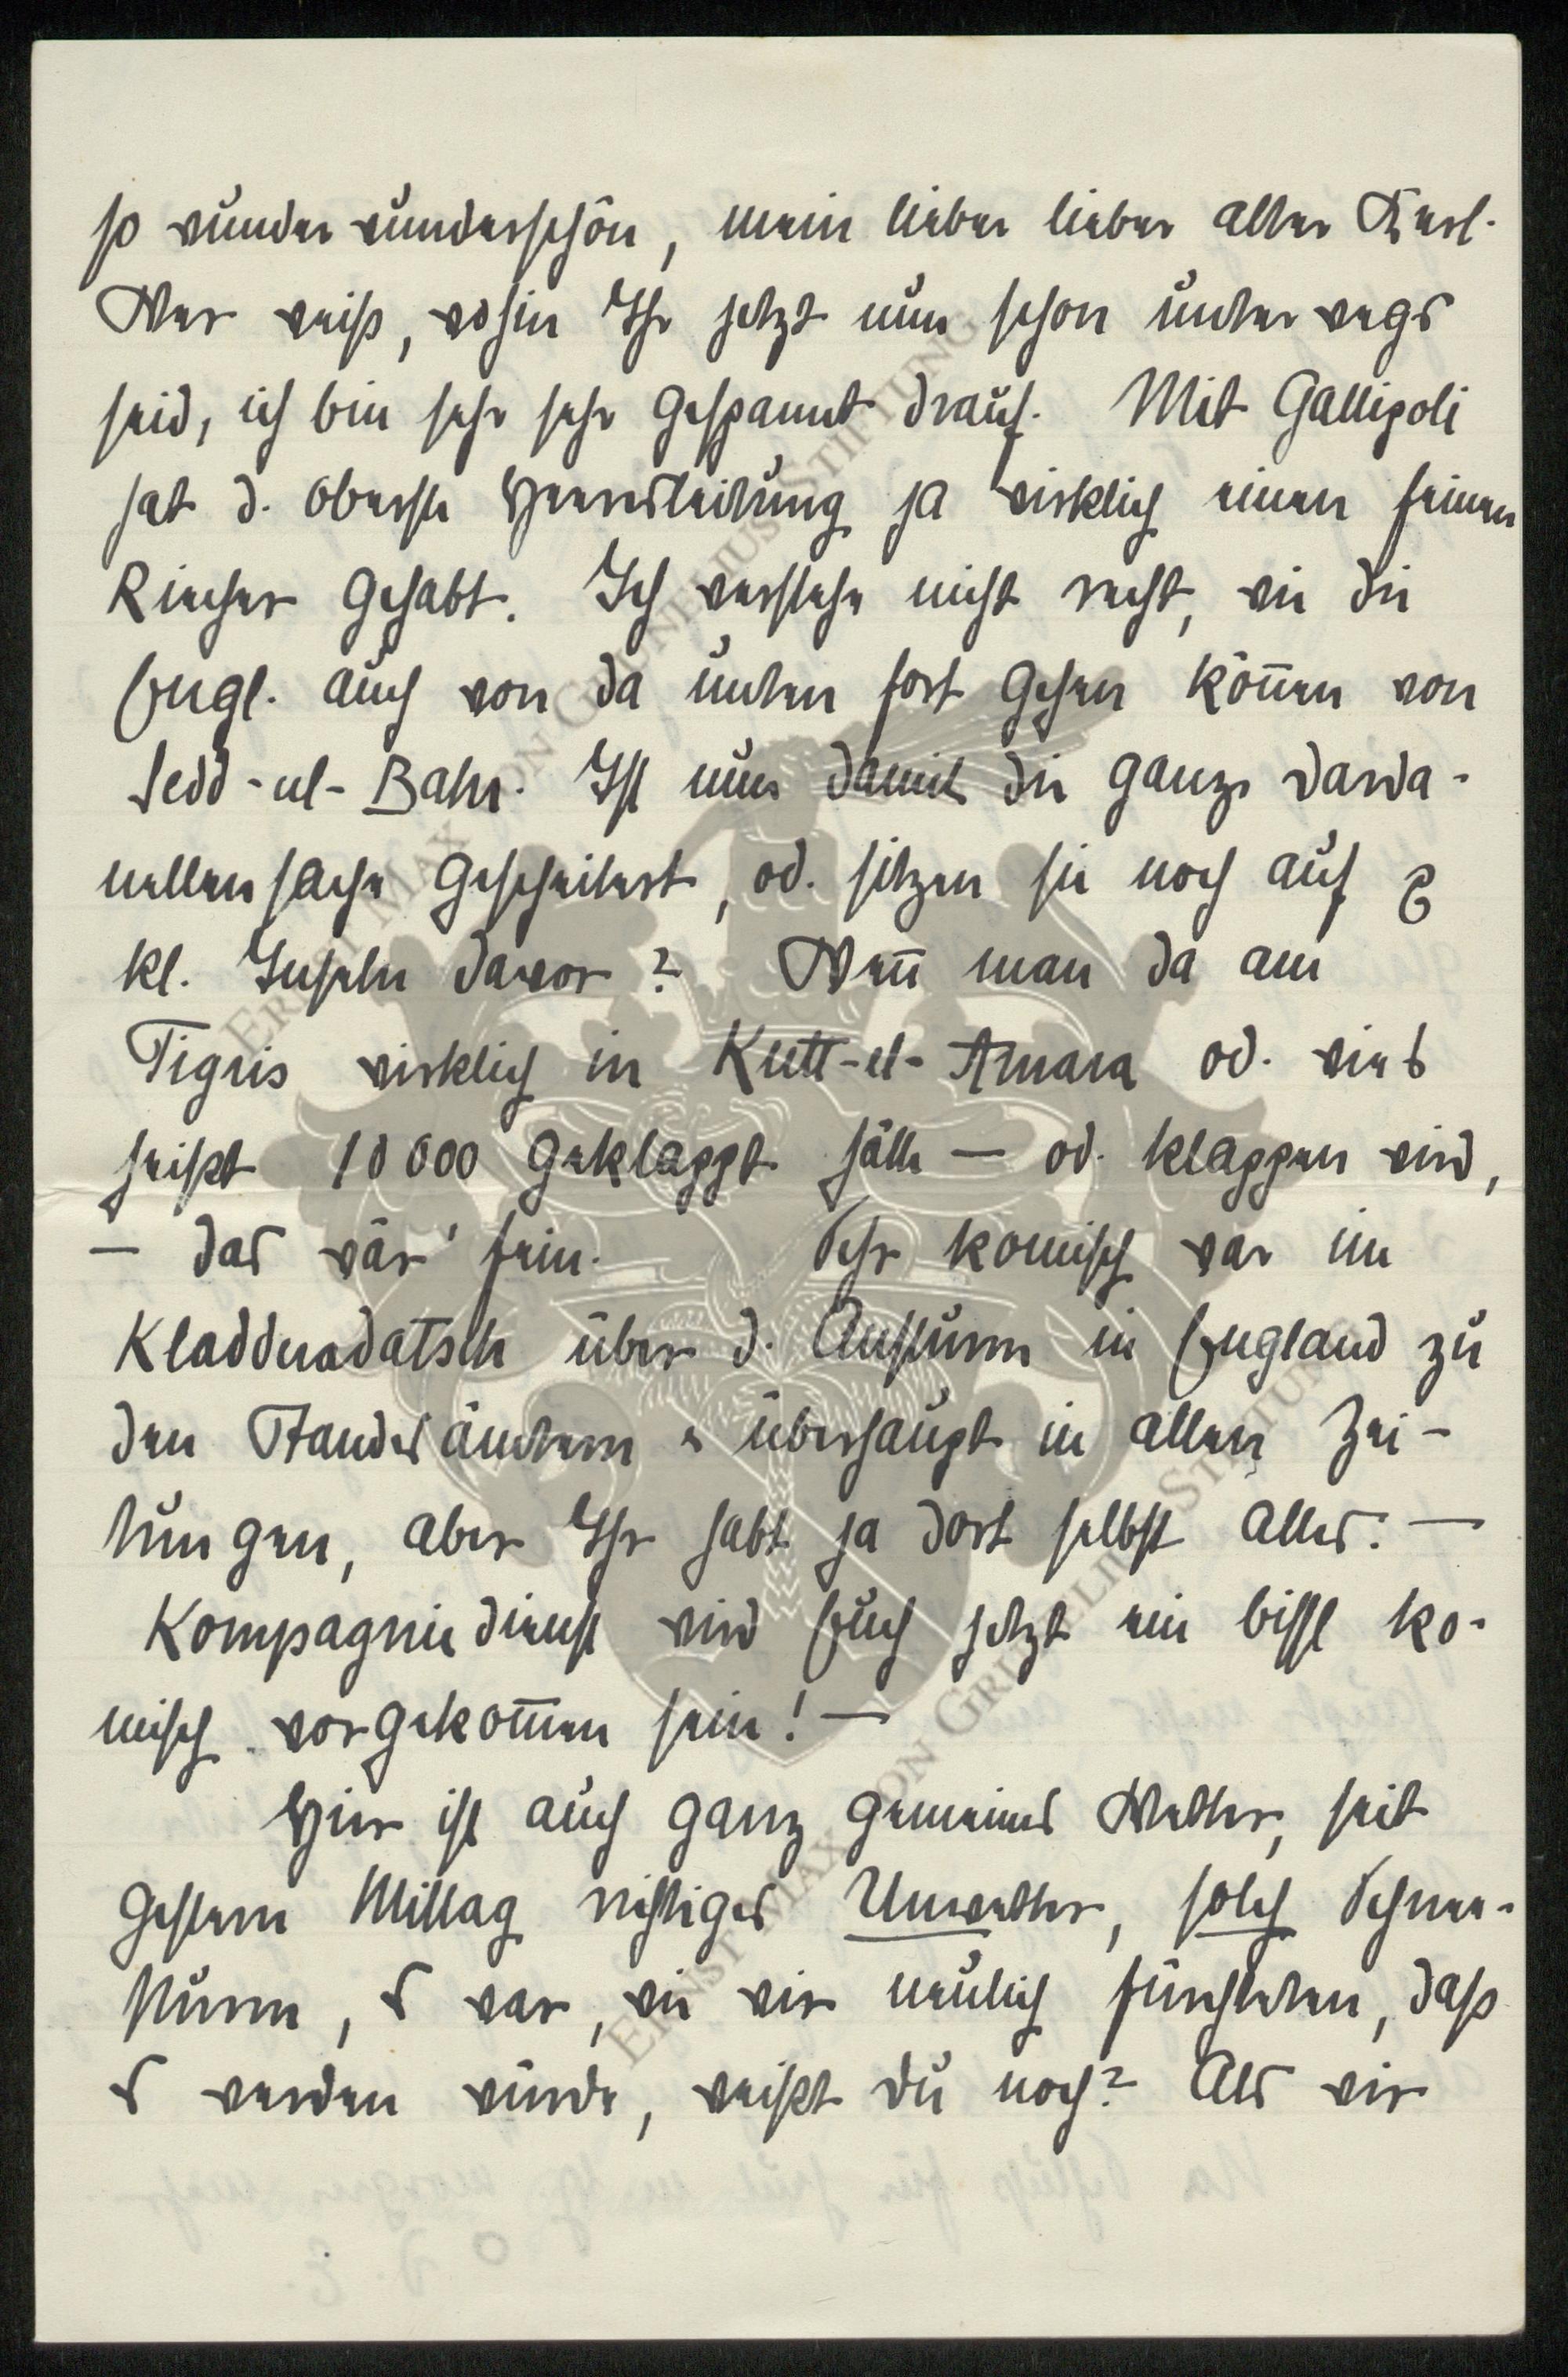 so wunder wunderschön, mein lieber lieber alter Kerl.
Wer weiß, wohin Ihr jetzt nun schon unterwegs
seid, ich bin sehr sehr gespannt drauf. Mit Gallipoli
hat d. oberste Heeresleitung ja wirklich einen feinen
Riecher gehabt. Ich verstehe nicht recht, wie die
Engl. auch von da unten fort gehen können von
Sedd-ul-Bahr. Ist nun damit die ganze Darda-
nellensache gescheitert, od. sitzen sie noch auf
kl. Inseln davor? Wenn man da am
Tigris wirklich in Kutt-el-Amara od. wie's
heißt 10000 geklappt hätte — od. klappen wird,
— das wär' fein. Sehr komisch war im
Kladderadatsch über d. Ansturm in England zu
den Standesämtern u überhaupt in allen Zei-
tungen, aber Ihr habt ja dort selbst alles. —
Kompagniedienst wird Euch jetzt ein bissl ko-
misch vorgekommen sein! —
Hier ist auch ganz gemeines Wetter, seit
gestern Mittag richtiges Unwetter, solch Schnee-
sturm, 's war, wie wir neulich fürchteten, daß
's werden würde, weißt du noch? Als wir
ERNST MAX VON GRUNELIUS-STIFTUNG
ERNST MAX VON GRUNELIUS-STIFTUNG